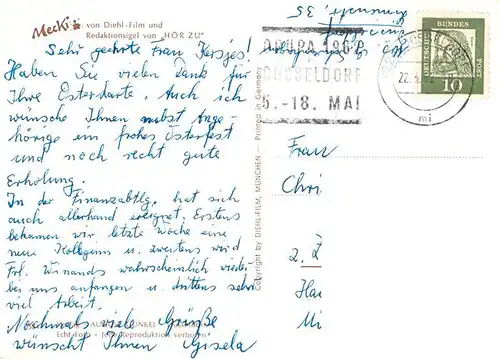 Mecki von Diehl-Film und
Redaktionsigel von "HÖR ZU"
Sehr geehrte Frau
Haben Sie vielen Dank für
Ihre Osterkarte. Auch ich
wünsche Ihnen nebst Ange-
hörige ein frohes Osterfest
und noch recht gute
Erholung.
In der Finanzabtlg. hat sich
auch allerhand ereignet. Erstens
bekamen wir letzte Woche eine
neue Kollegin u. zweitens wird
Frl. Winands wahrscheinlich wieder
bei uns anfangen u. drittens sehr
viel Arbeit.
Nochmals viele Grüße
wünscht Ihnen Gisela
Echt Foto - Reproduktion verboten
Copyright by DIEHL-FILM, MÜNCHEN — Printed in Germany
35
DRUPA 1962
DÜSSELDORF
5.-18. MAI
22.
mi
DEUTSCHE BUNDESPOST
10
Frau
Chri
2. Z
Han
Mi